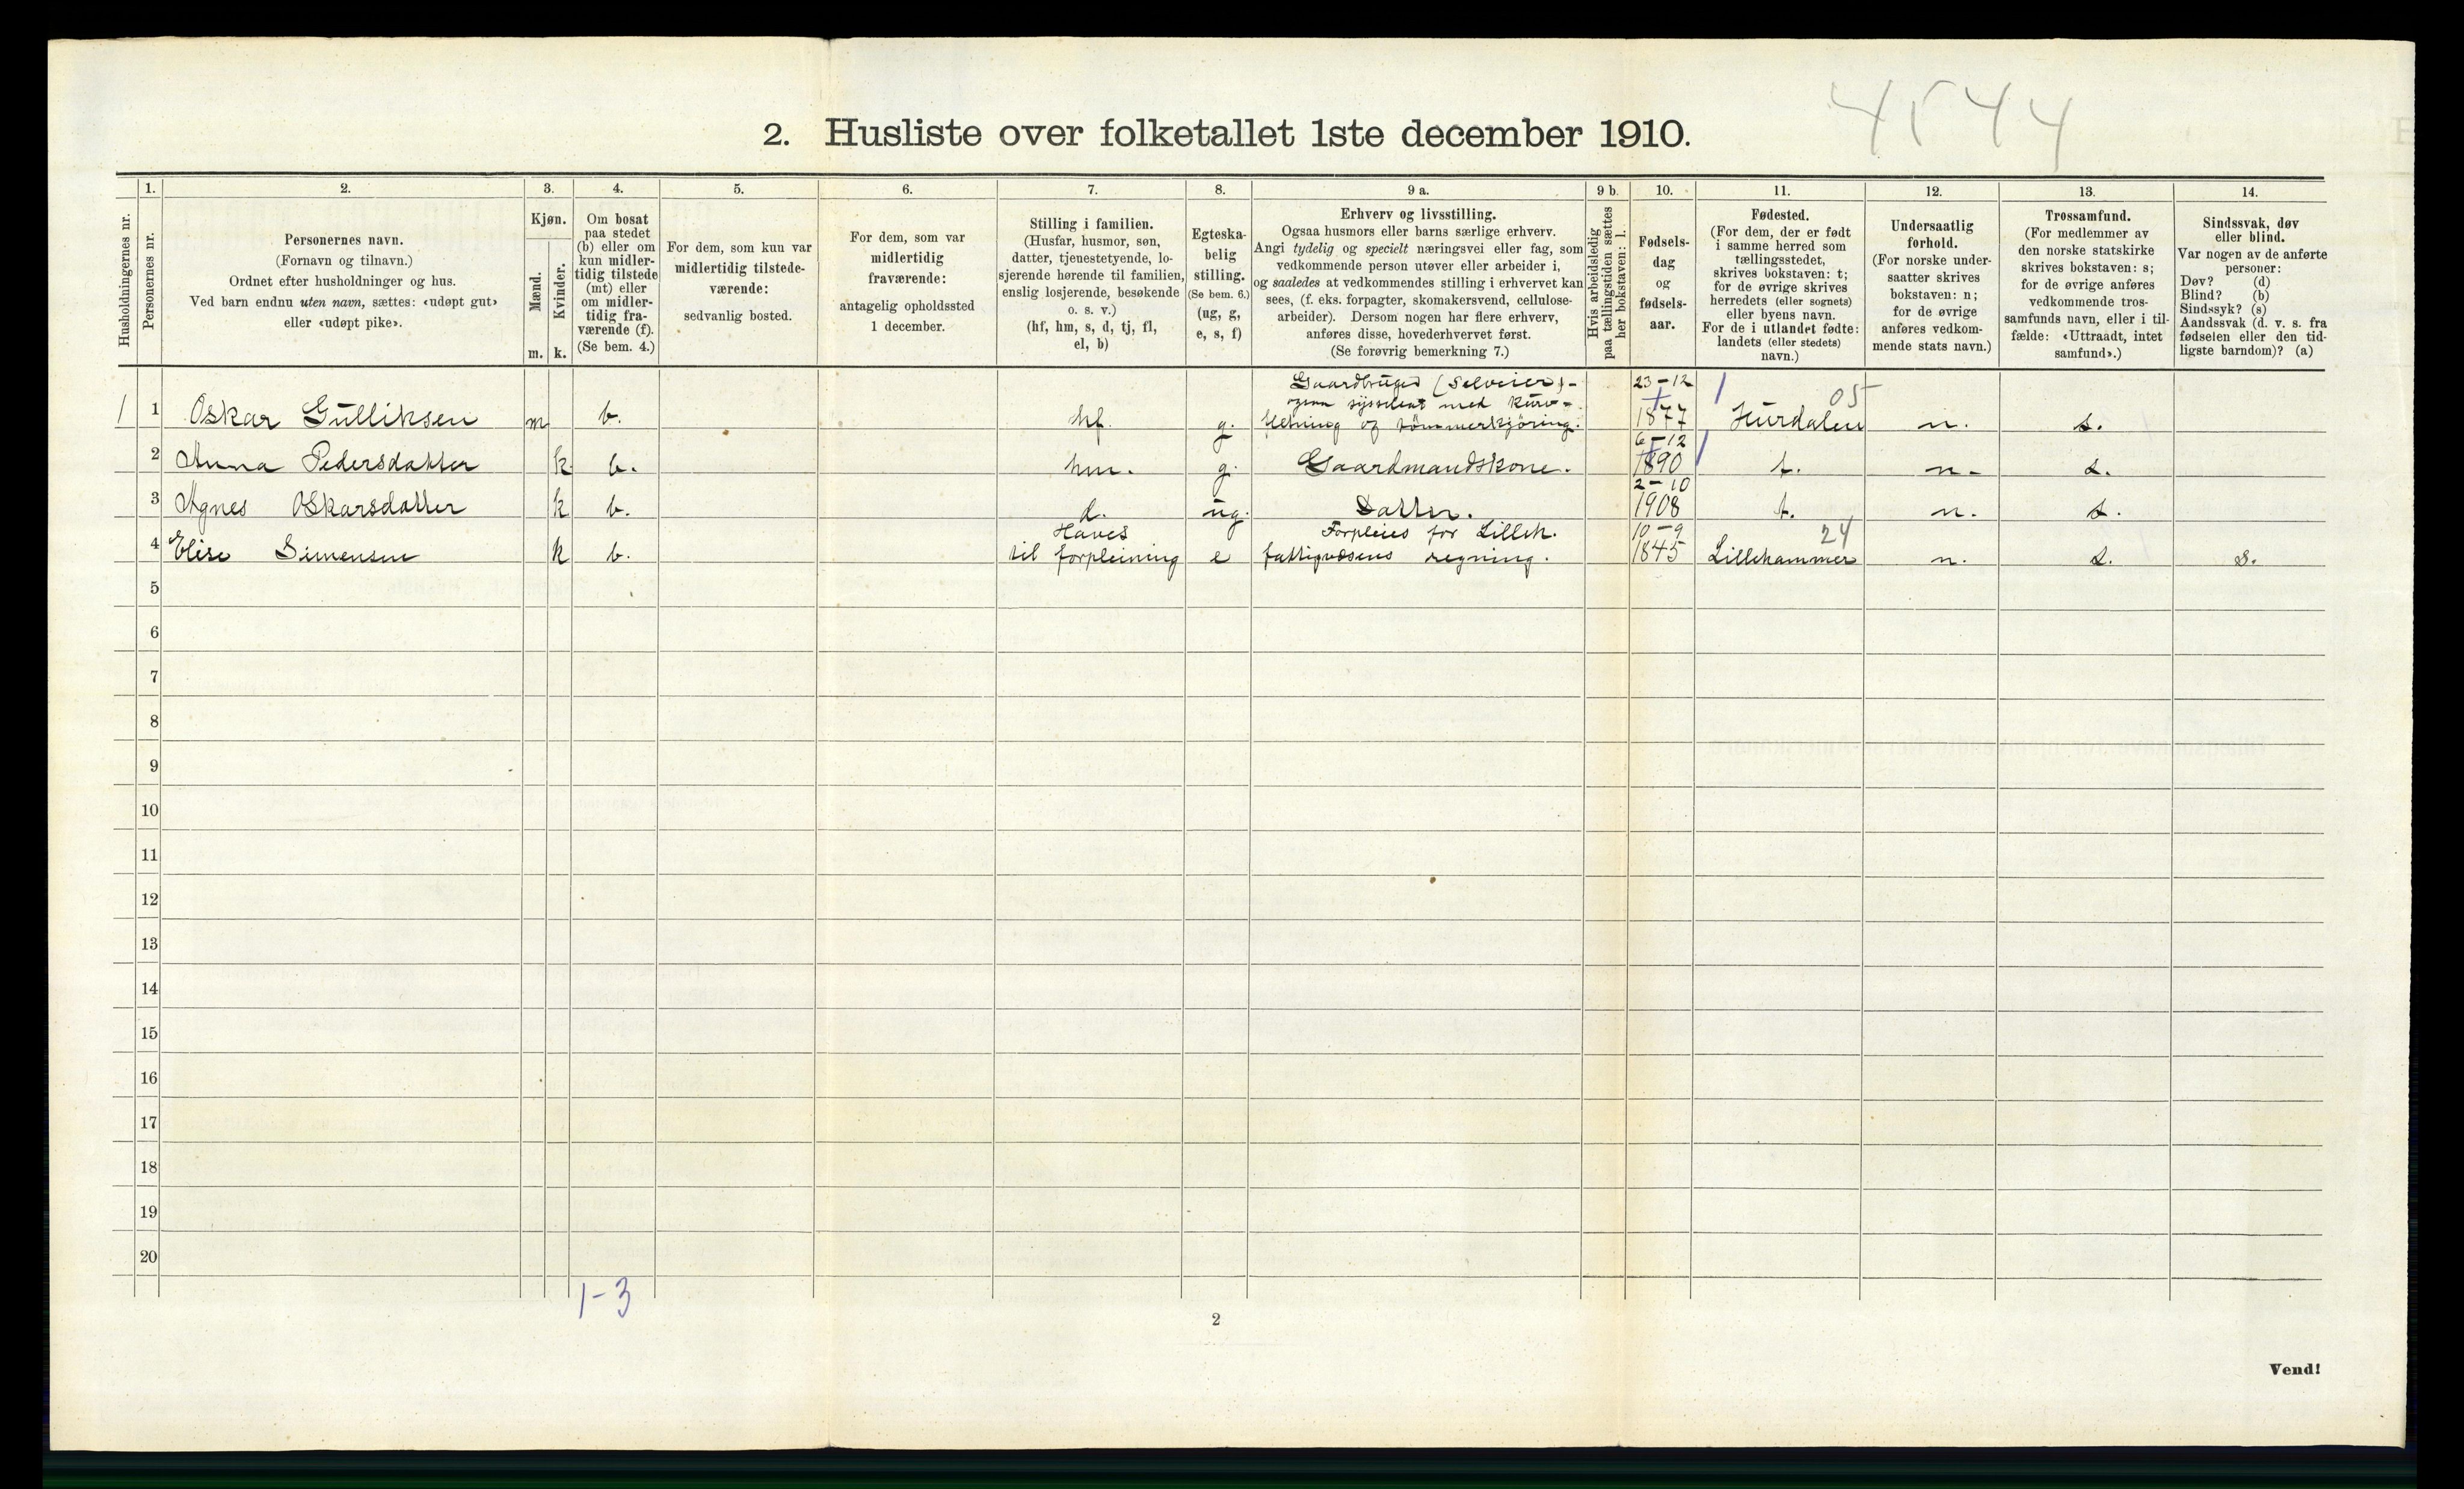 4544
2. Husliste over folketallet 1ste december 1910.
Husholdningernes nr.
1.
Personernes nr.
2.
Personernes navn.
(Fornavn og tilnavn.)
Ordnet efter husholdninger og hus.
Ved barn endnu uten navn, sættes: «udøpt gut»
eller «udøpt pike».
3.
Kjøn.
Mænd.
Kvinder.
m. k.
4.
Om bosat
paa stedet
(b) eller om
kun midler-
tidig tilstede
(mt) eller
om midler-
tidig fra-
værende (f).
(Se bem. 4.)
5.
For dem, som kun var
midlertidig tilstede-
værende:
sedvanlig bosted.
6.
For dem, som var
midlertidig
fraværende:
antagelig opholdssted
1 december.
7.
Stilling i familien.
(Husfar, husmor, søn,
datter, tjenestetyende, lo-
sjerende hørende til familien,
enslig losjerende, besøkende
o. s. v.)
(hf, hm, s, d, tj, fl,
el, b)
8.
Egteska-
belig
stilling.
(Se bem. 6.)
(ug, g,
e, s, f)
9 a.
Erhverv og livsstilling.
Ogsaa husmors eller barns særlige erhverv.
Angi tydelig og specielt næringsvei eller fag, som
vedkommende person utøver eller arbeider i,
og saaledes at vedkommendes stilling i erhvervet kan
sees, (f. eks. forpagter, skomakersvend, cellulose-
arbeider). Dersom nogen har flere erhverv,
anføres disse, hovederhvervet først.
(Se forøvrig bemerkning 7.)
9 b.
Hvis arbeidsledig
paa tællingstiden sættes
her bokstaven: l.
10.
Fødsels-
dag
og
fødsels-
aar.
11.
Fødested.
(For dem, der er født
i samme herred som
tællingsstedet,
skrives bokstaven: t;
for de øvrige skrives
herredets (eller sognets)
eller byens navn.
For de i utlandet fødte:
landets (eller stedets)
navn.)
12.
Undersaatlig
forhold.
(For norske under-
saatter skrives
bokstaven: n;
for de øvrige
anføres vedkom-
mende stats navn.)
13.
Trossamfund.
(For medlemmer av
den norske statskirke
skrives bokstaven: s;
for de øvrige anføres
vedkommende tros-
samfunds navn, eller i til-
fælde: «Uttraadt, intet
samfund».)
14.
Sindssvak, døv
eller blind.
Var nogen av de anførte
personer:
Døv? (d)
Blind? (b)
Sindssyk? (s)
Aandssvak (d. v. s. fra
fødselen eller den tid-
ligste barndom)? (a)
Gaardbruger (Selveier) - 23-12
ogsaa sysselsat med kurv- 05
1 1 Oskar Gulliksen m b. hf. g. fletning og tömmerkjöring. 1877 Hurdalen n. s.
6-12
2 Anna Pedersdatter k b. hm. g. Gaardmandskone. 1890 t. n. s.
2-10
3 Agnes Oskarsdatter k b. d. ug. Datter. 1908 t. n. s.
Haves Forpleies for Lilleh. 10-9 24
4 Elise Simensen k b. til forpleining e fattigvæsens regning. 1845 Lillehammer n. s. s.
5
6
7
8
9
10
11
12
13
14
15
16
17
18
19
20
1-3
2
Vend!